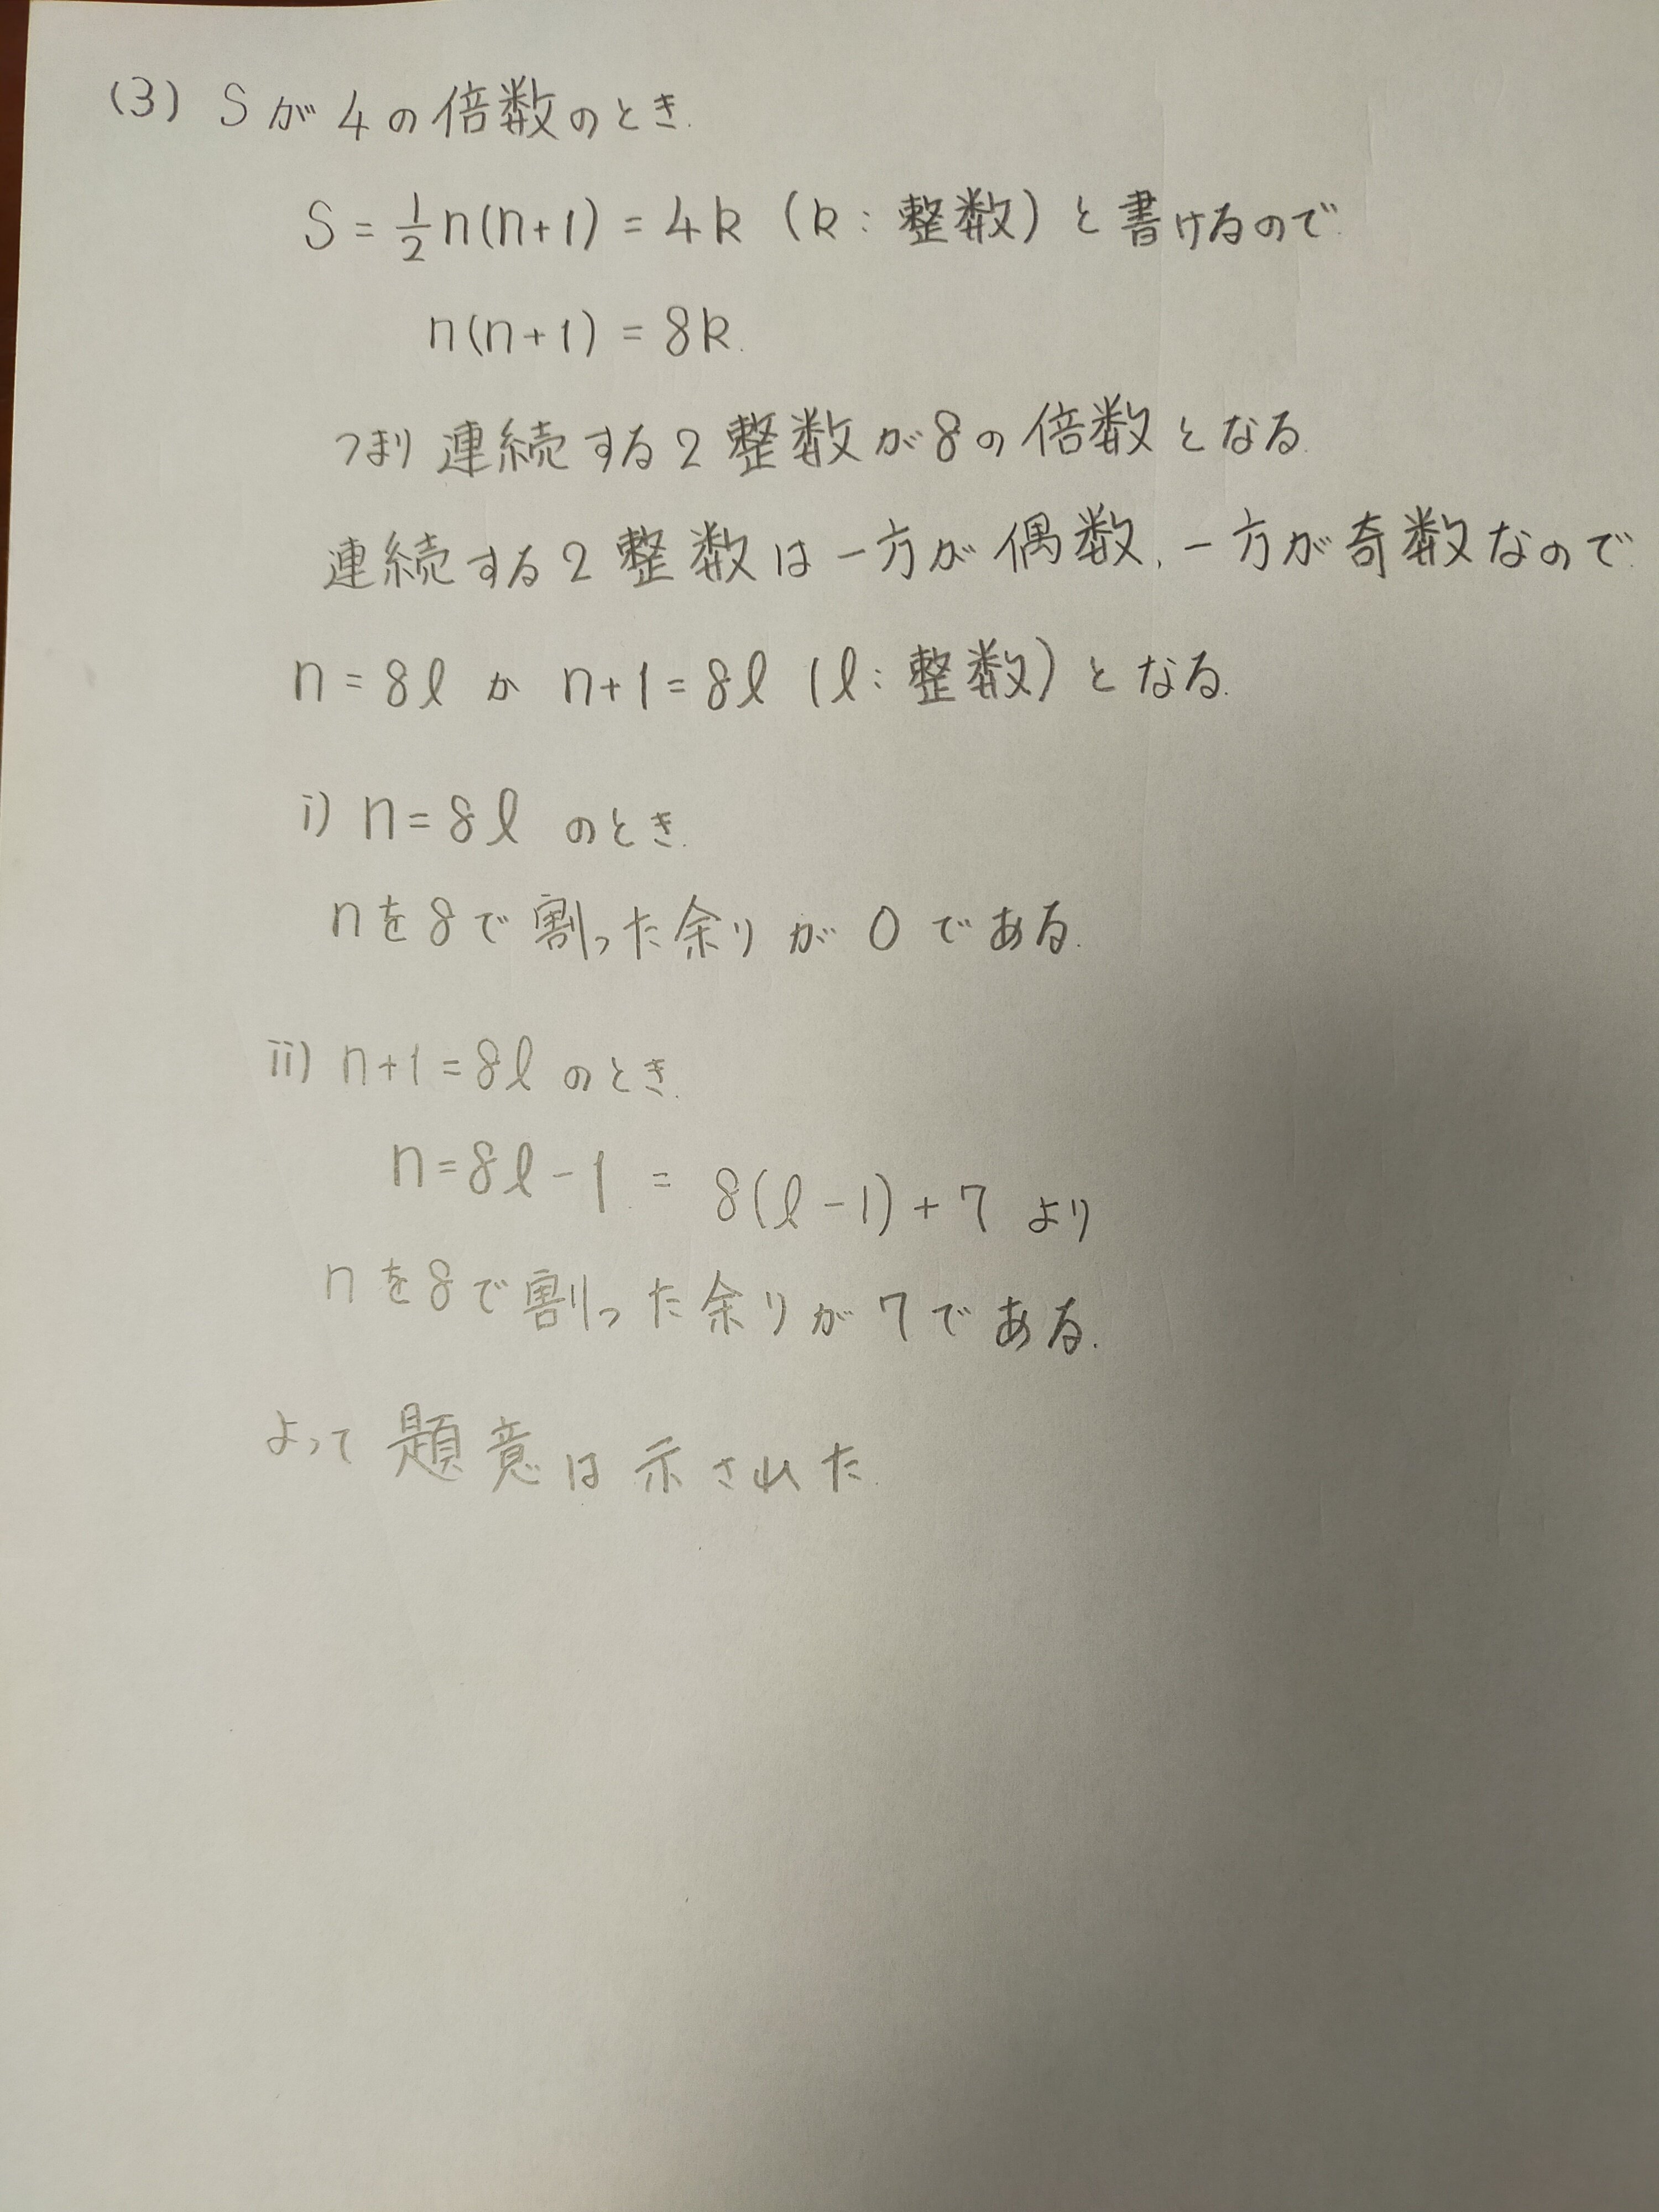 (3) Sが4の倍数のとき.
S = 1/2 n(n+1) = 4k (k : 整数) と書けるので.
n(n+1) = 8k.
つまり連続する2整数が8の倍数となる.
連続する2整数は一方が偶数、一方が奇数なので.
n = 8l か n+1 = 8l (l : 整数) となる.
i) n = 8l のとき.
nを8で割った余りが0である.
ii) n+1 = 8l のとき.
n = 8l - 1 = 8(l - 1) + 7 より
nを8で割った余りが7である.
よって題意は示された.